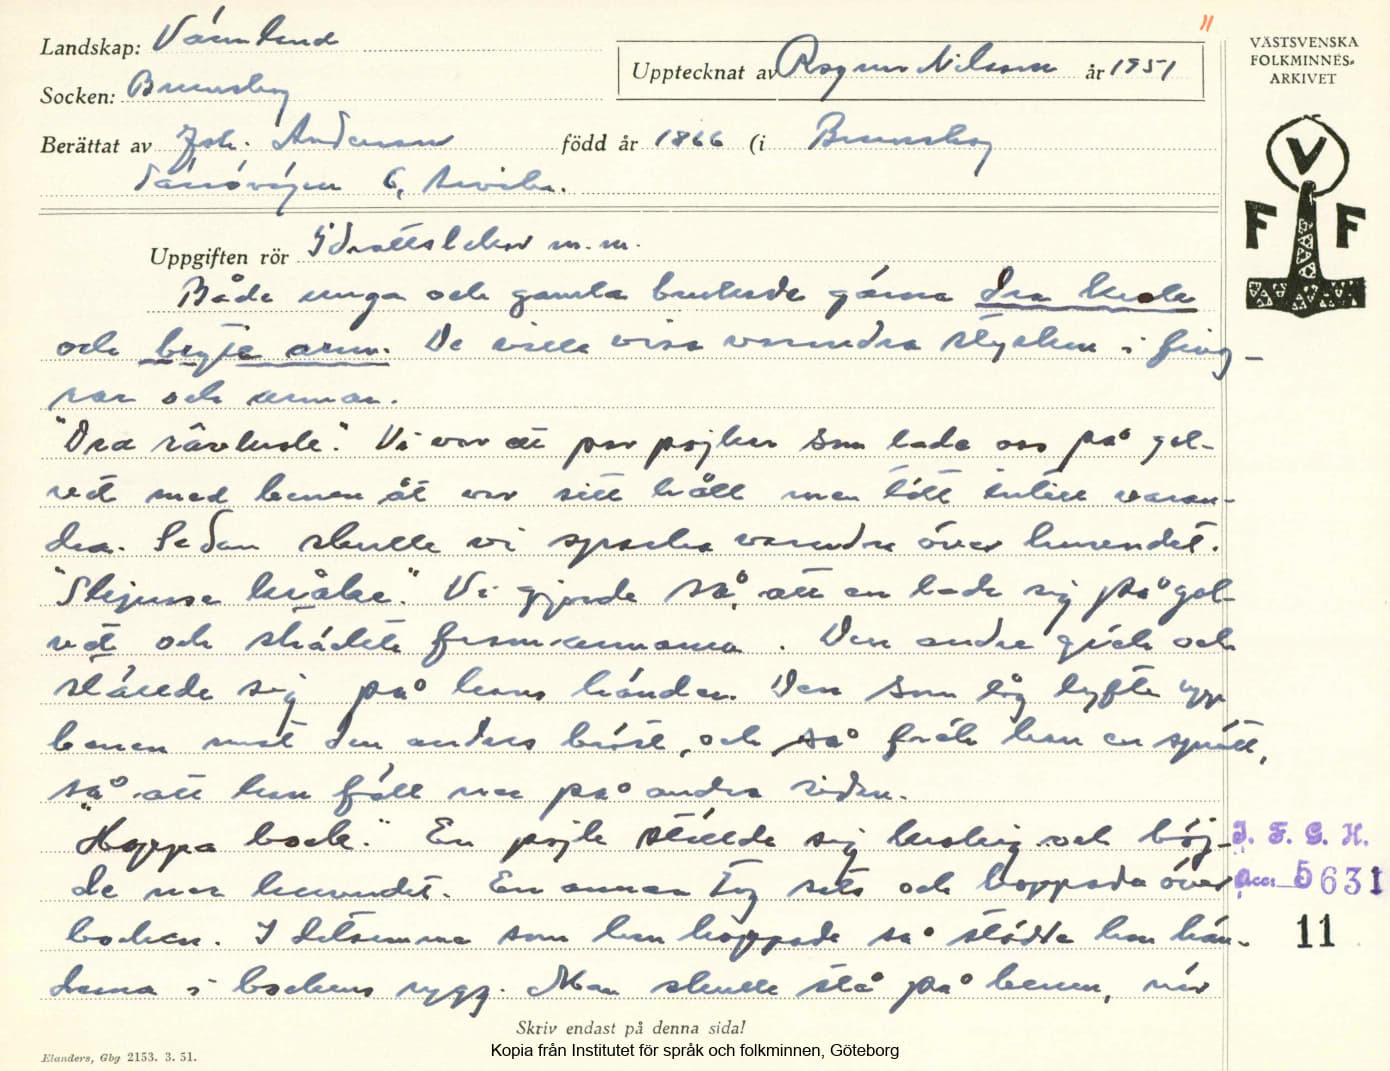 11
Landskap: Värmland
Upptecknat av Ragnar Nilsson år 1951
VÄSTSVENSKA
FOLKMINNES-
ARKIVET
Socken: Brunskog
Berättat av Joh. Andersson född år 1866 (i Brunskog
6, Arvika.
V
F F
Uppgiften rör Idrottslekar m.m.
Både unga och gamla brukade gärna dra krok
och bryta arm. De ville visa varandra styrkan i fing-
rar och armar.
"Dra rävkrok". Vi var ett par pojkar som lade oss på gol-
vet med benen åt var sitt håll men tätt intill varan-
dra. Sedan skulle vi sparka varandra över huvudet.
"Skjussa kråka". Vi gjorde så, att en lade sig på gol-
vet och sträckte fram armarna. Den andre gick och
ställde sig på hans händer. Den som låg lyfte upp
benen mot den andres bröst, och så fick han en spjutt,
så att han föll ner på andra sidan.
"Hoppa bock". En pojk ställde sig krokig och böj-
de ner huvudet. En annan tog sats och hoppade över
bocken. I detsamma som han hoppade så stödde han hän-
derna i bockens rygg. Man skulle stå på benen, när
I. F. G. H.
Acc. 5631
11
Skriv endast på denna sida!
Elanders, Gbg 2153. 3. 51.
Kopia från Institutet för språk och folkminnen, Göteborg